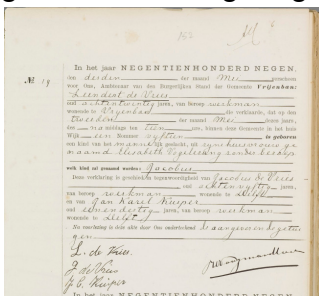 152
In het jaar NEGENTIENHONDERD NEGEN,
№ 19.
den derden der maand Mei verscheen
voor Ons, Ambtenaar van den Burgerlijken Stand der Gemeente Vrijenban:
Leendert de Vries
oud achtentwintig jaren, van beroep werkman
wonende te Vrijenban die verklaarde, dat op den
tweeden der maand Mei dezes jaars,
des namiddags ten een ure, binnen deze Gemeente in het huis
Wijk een Nommer vijftien is geboren
een kind van het mannelijk geslacht, uit zijne huisvrouw ge-
naamd Elisabeth Vogelesang zonder beroep
welk kind zal genaamd worden: Jacobus
Deze verklaring is geschied in tegenwoordigheid van Jacobus de Vries
oud achtenvijftig jaren,
van beroep werkman wonende te Delft
en van Jan Karel Kuiper
oud eenendertig jaren, van beroep werkman
wonende te Delft
Na voorlezing is deze akte door Ons onderteekend de aangever en de getui-
gen
L. de Vries.
J de Vries
J. C. Kuiper
In het jaar NEGENTIENHONDERD NEGEN